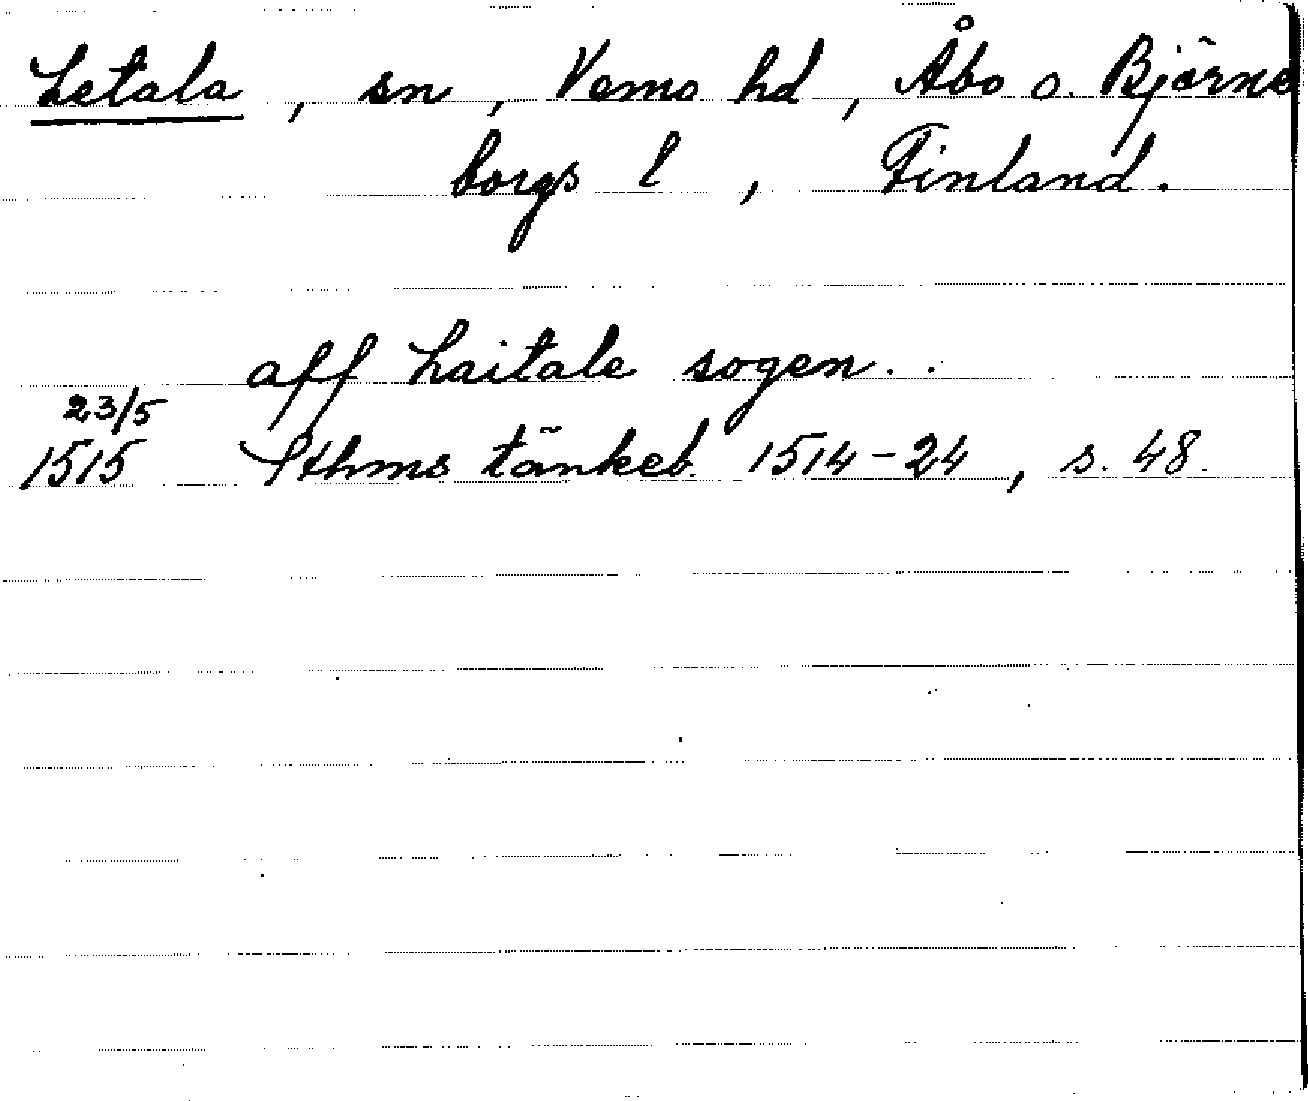 Letala, sn, Vemo hd, Åbo o. Björne
borgs l, Finland.
aff Laitale sogen..
23/5
1515 Sthms tänkeb. 1514-24, s. 48.